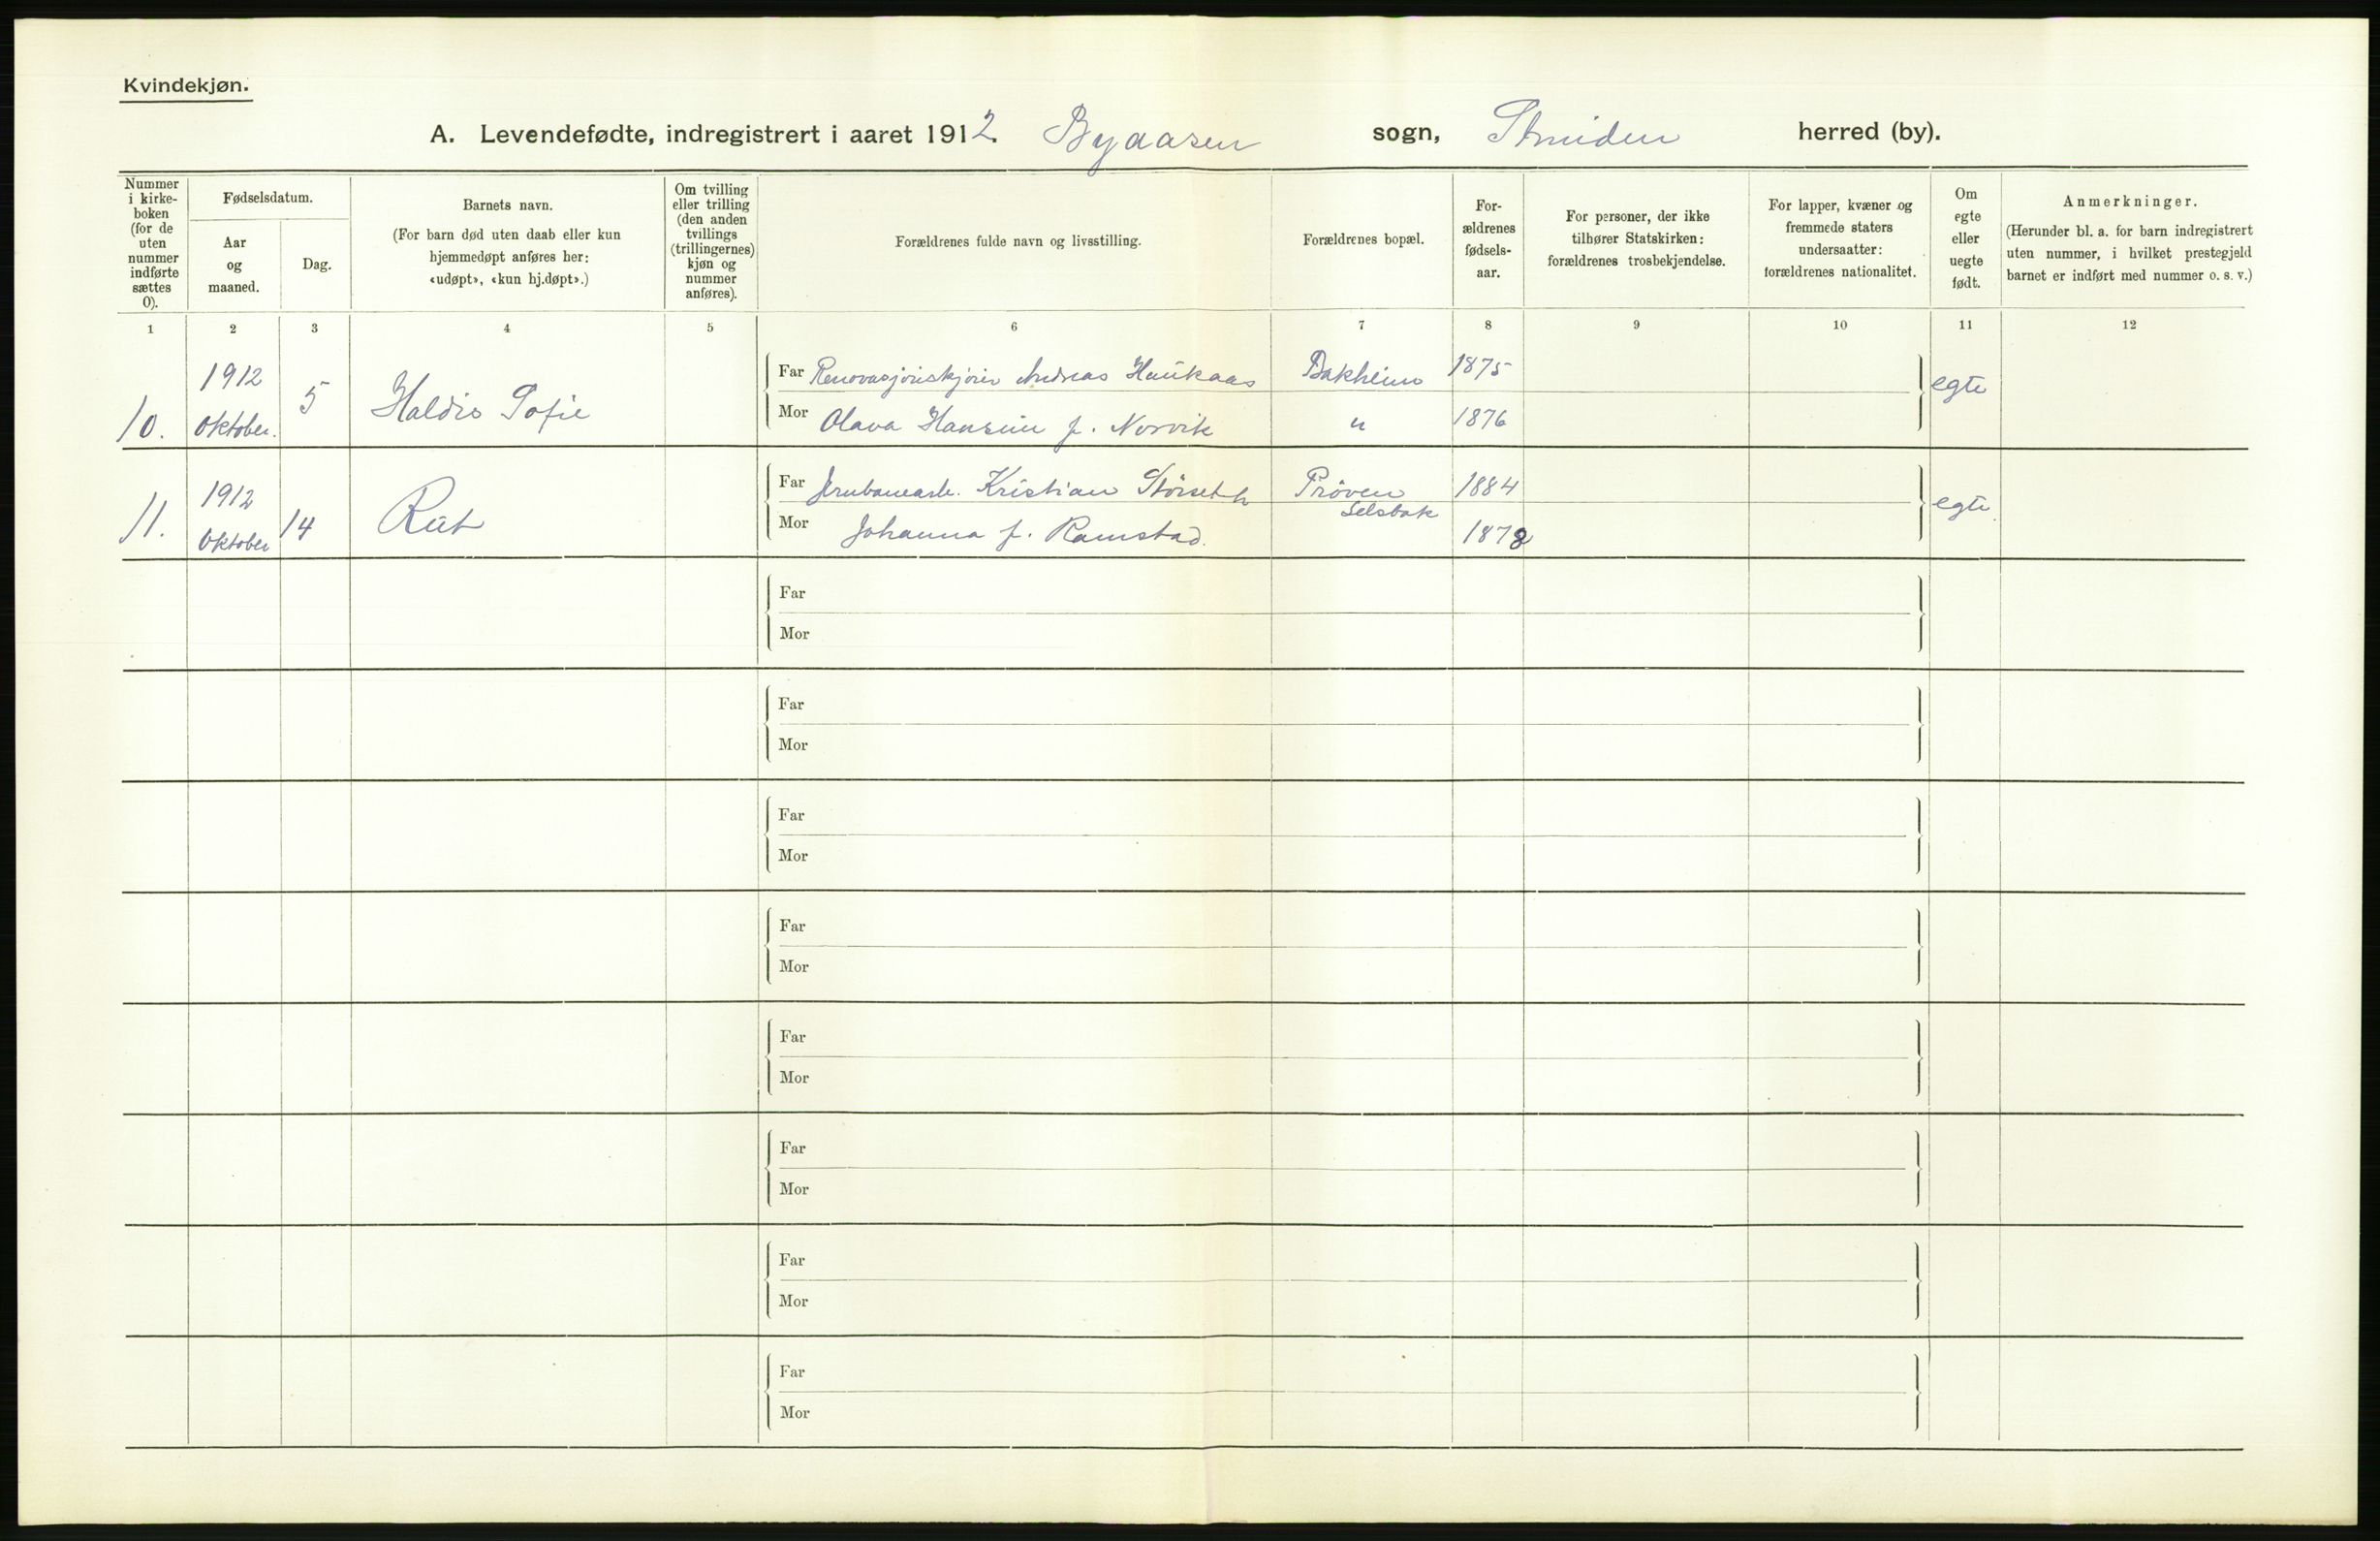 Kvindekjøn.
A. Levendefødte, indregistrert i aaret 1912. Byaasen sogn, Strinden herred (by).
Nummer i kirke-boken (for de uten nummer indførte sættes 0).
Fødselsdatum.
Aar og maaned.
Dag.
Barnets navn.
(For barn død uten daab eller kun hjemmedøpt anføres her: «udøpt», «kun hj.døpt».)
Om tvilling eller trilling (den anden tvillings (trillingernes) kjøn og nummer anføres).
Forældrenes fulde navn og livsstilling.
Forældrenes bopæl.
For-ældrenes fødsels-aar.
For personer, der ikke tilhører Statskirken: forældrenes trosbekjendelse.
For lapper, kvæner og fremmede staters undersaatter: forældrenes nationalitet.
Om egte eller uegte født.
Anmerkninger.
(Herunder bl. a. for barn indregistrert uten nummer, i hvilket prestegjeld barnet er indført med nummer o. s. v.)
1 2 3 4 5 6 7 8 9 10 11 12
10. 1912 Oktober. 5 Haldis Sofie
Far Renovasjonskjører Andreas Haukaas Bakheim 1875 egte
Mor Olava Hansine f. Norvik " 1876
11. 1912 Oktober 14 Rut
Far Jernbanearb. Kristian Störseth Pröven Selsbak 1884 egte
Mor Johanna f. Ramstad. 1878
Far
Mor
Far
Mor
Far
Mor
Far
Mor
Far
Mor
Far
Mor
Far
Mor
Far
Mor